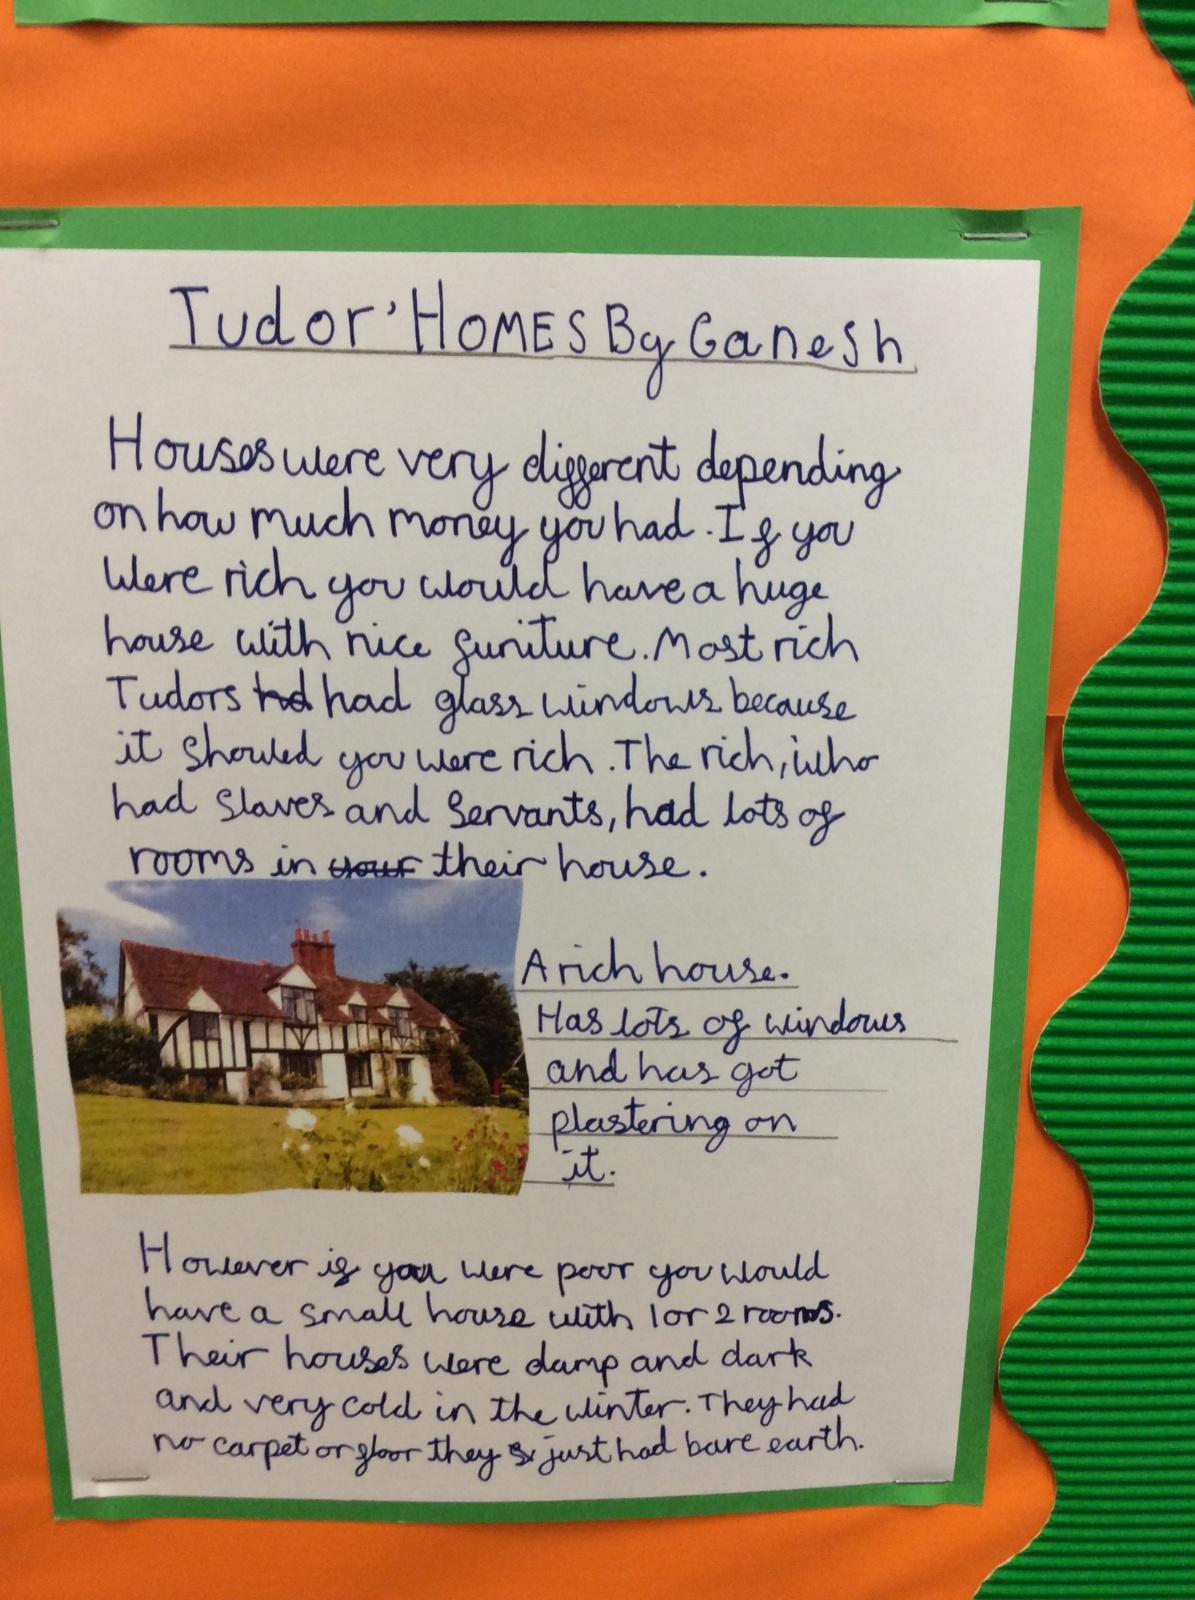 Tudor' HOMES By Ganesh
Houses were very different depending
on how much money you had. If you
were rich you would have a huge
house with nice funiture. Most rich
Tudors hd had glass windows because
it showed you were rich. The rich, who
had slaves and servants, had lots of
rooms in your their house.
A rich house.
Has lots of windows
and has got
plastering on
it.
However if you were poor you would
have a small house with 1 or 2 rooms.
Their houses were damp and dark
and very cold in the winter. They had
no carpet or floor they just had bare earth.